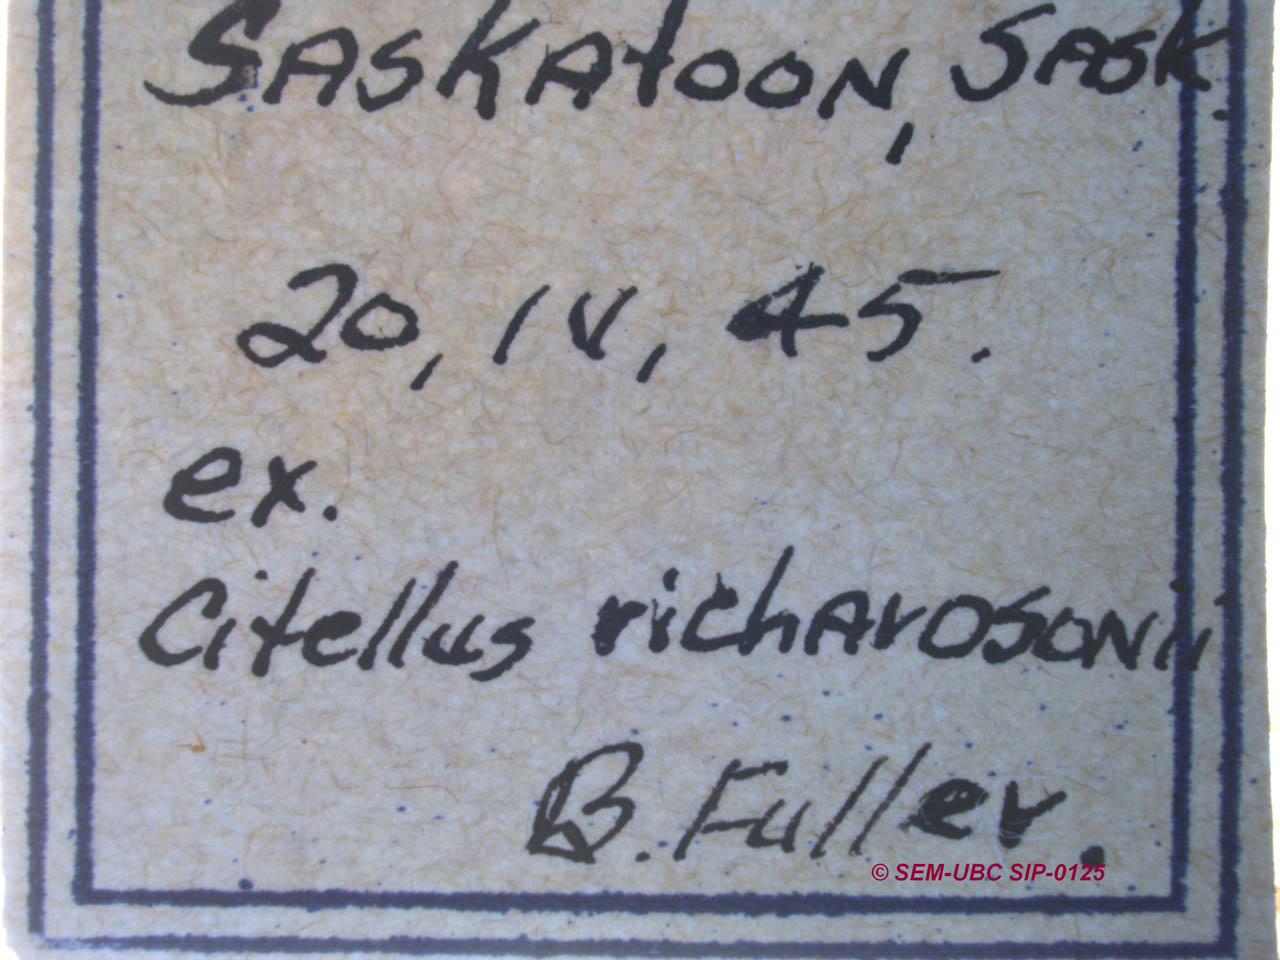 Saskatoon, Sask.
20, IV, 45.
ex.
Citellus richardsonii
B. Fuller.
© SEM-UBC SIP-0125